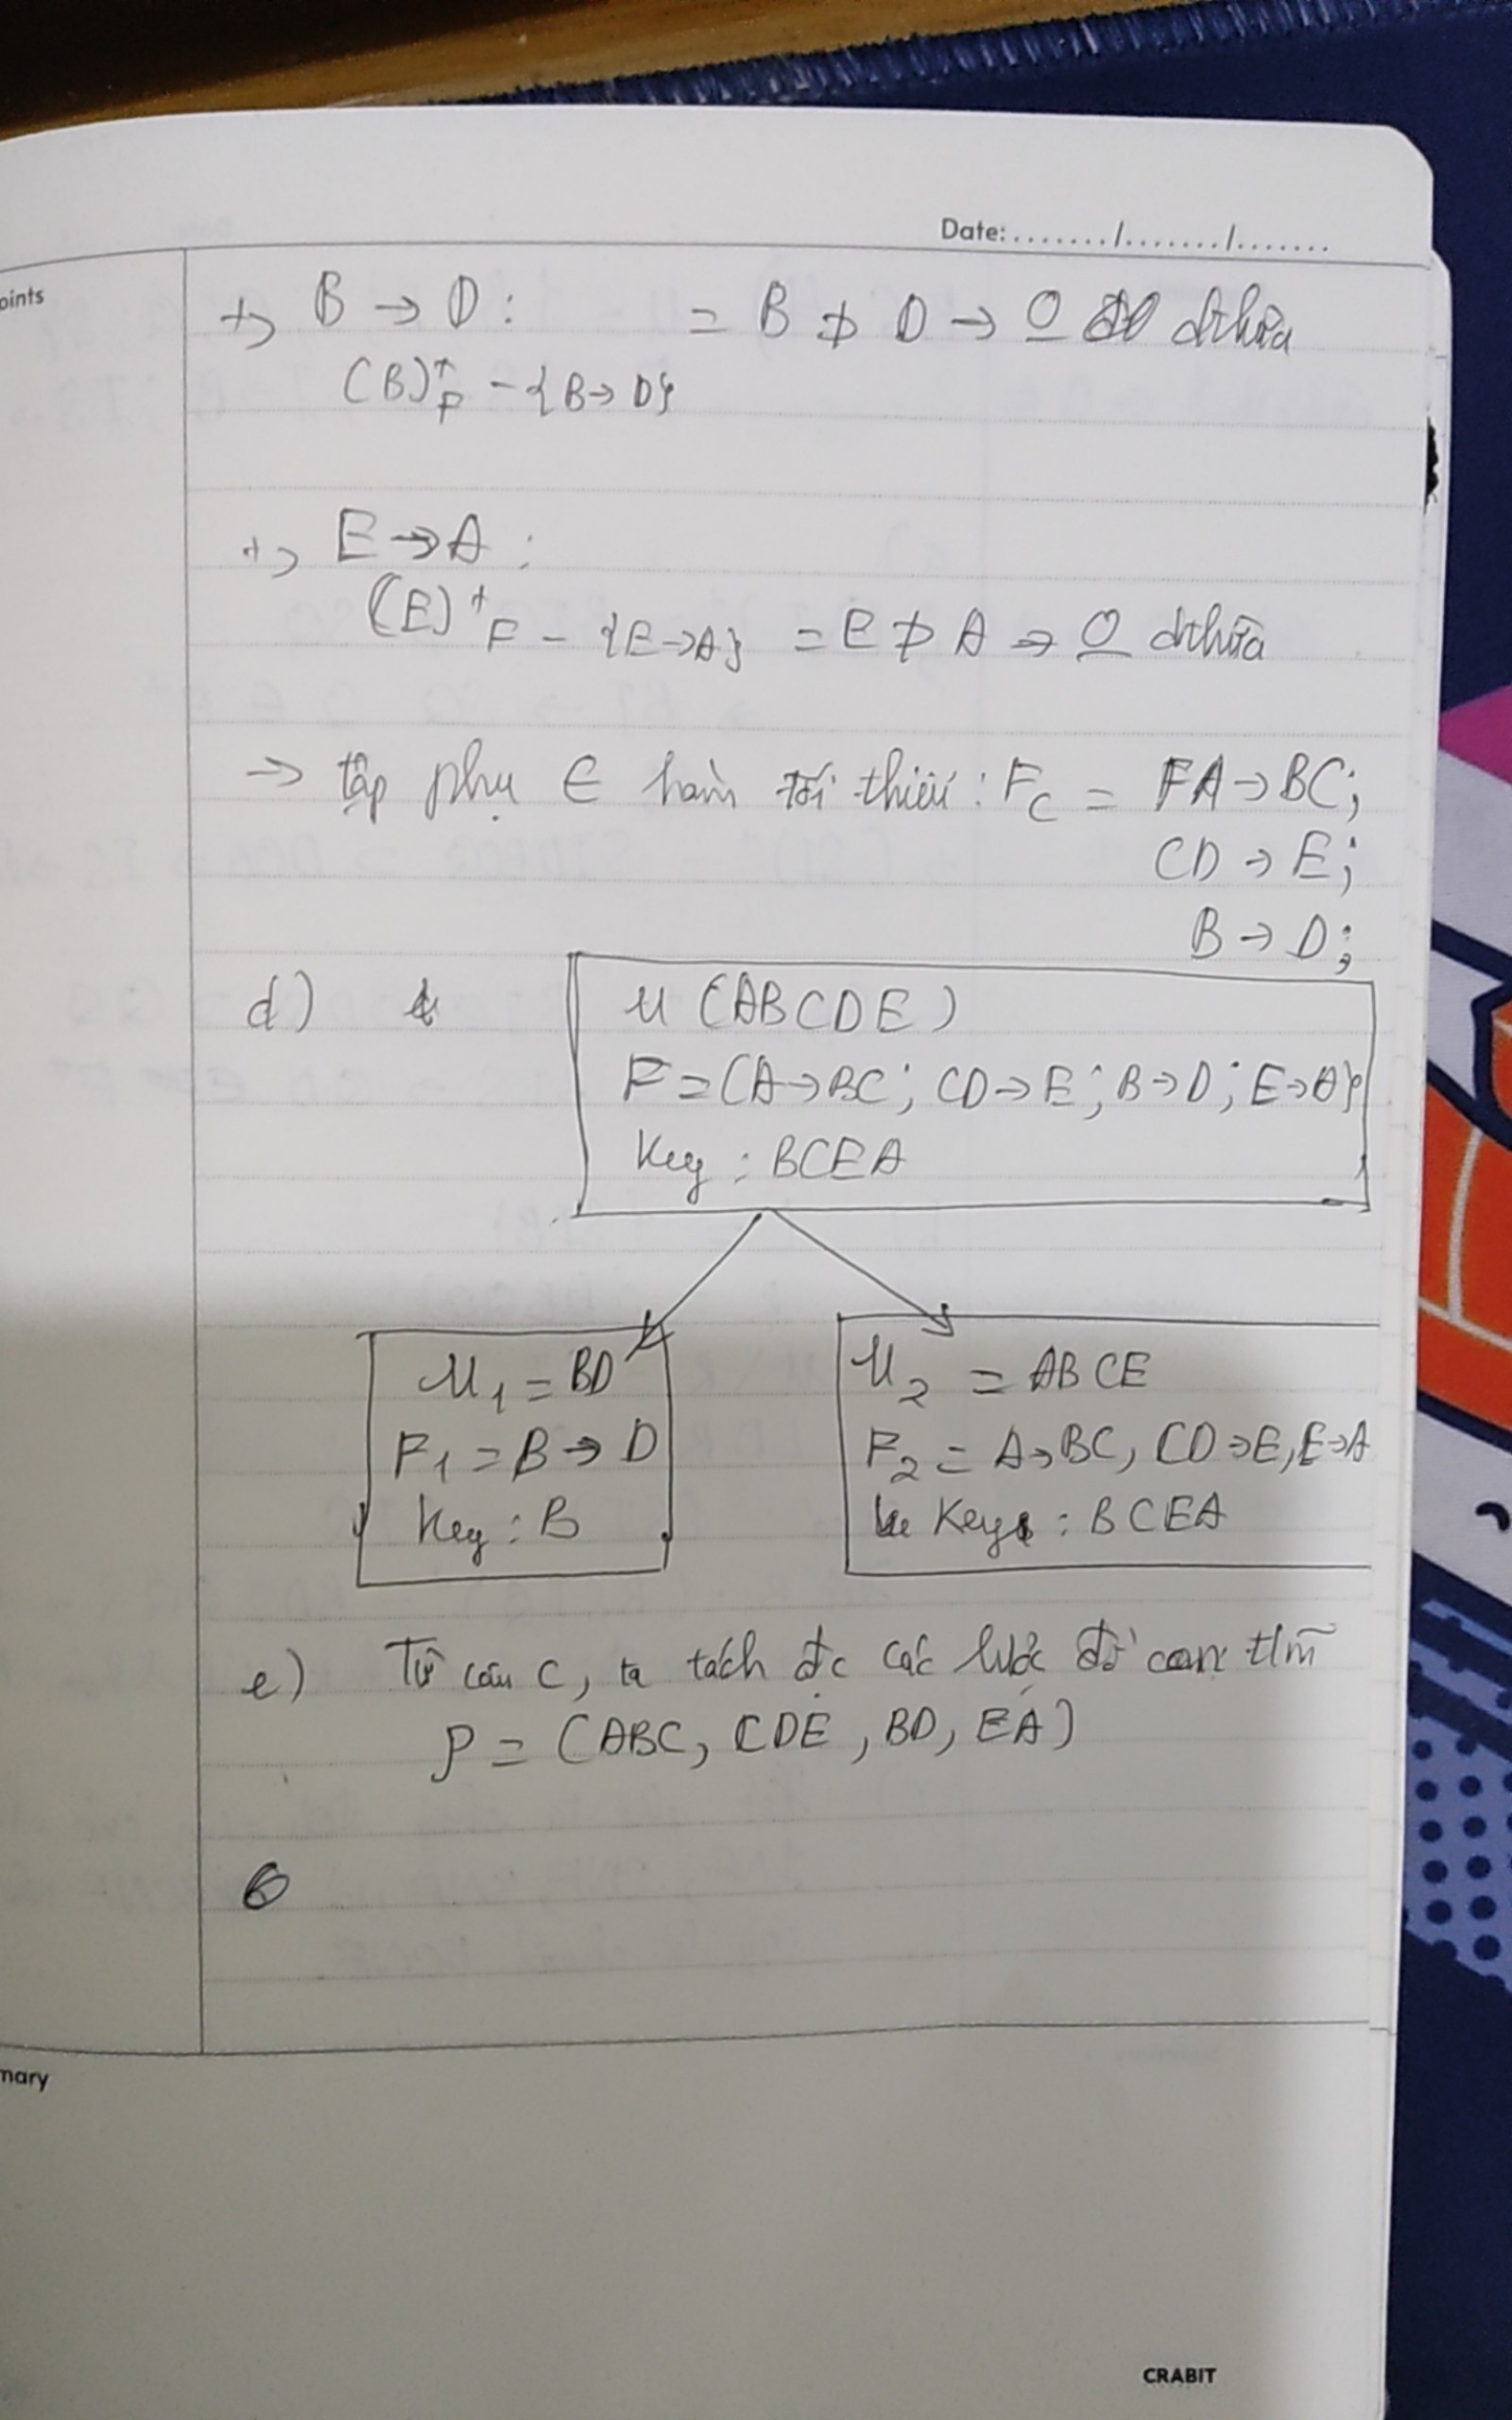 Date:......./......./.......
oints
+, B → D : = B ⊅ D → O dthừa
(B)⁺F - {B→D}
+, E → A :
(E)⁺F - {E→A} = E ⊅ A → O dthừa
→ tập phụ ∈ hàm tối thiểu : Fc = FA → BC;
CD → E;
B → D;
d)
U (ABCDE)
F = (A→BC; CD→E; B→D; E→A}
Key : BCEA
U1 = BD
F1 = B → D
Key : B
U2 = ABCE
F2 = A→BC, CD→E, E→A
Key : BCEA
e) Từ câu C, ta tách đc các lược đồ con tlm
ρ = (ABC, CDE, BD, EA)
6
mary
CRABIT